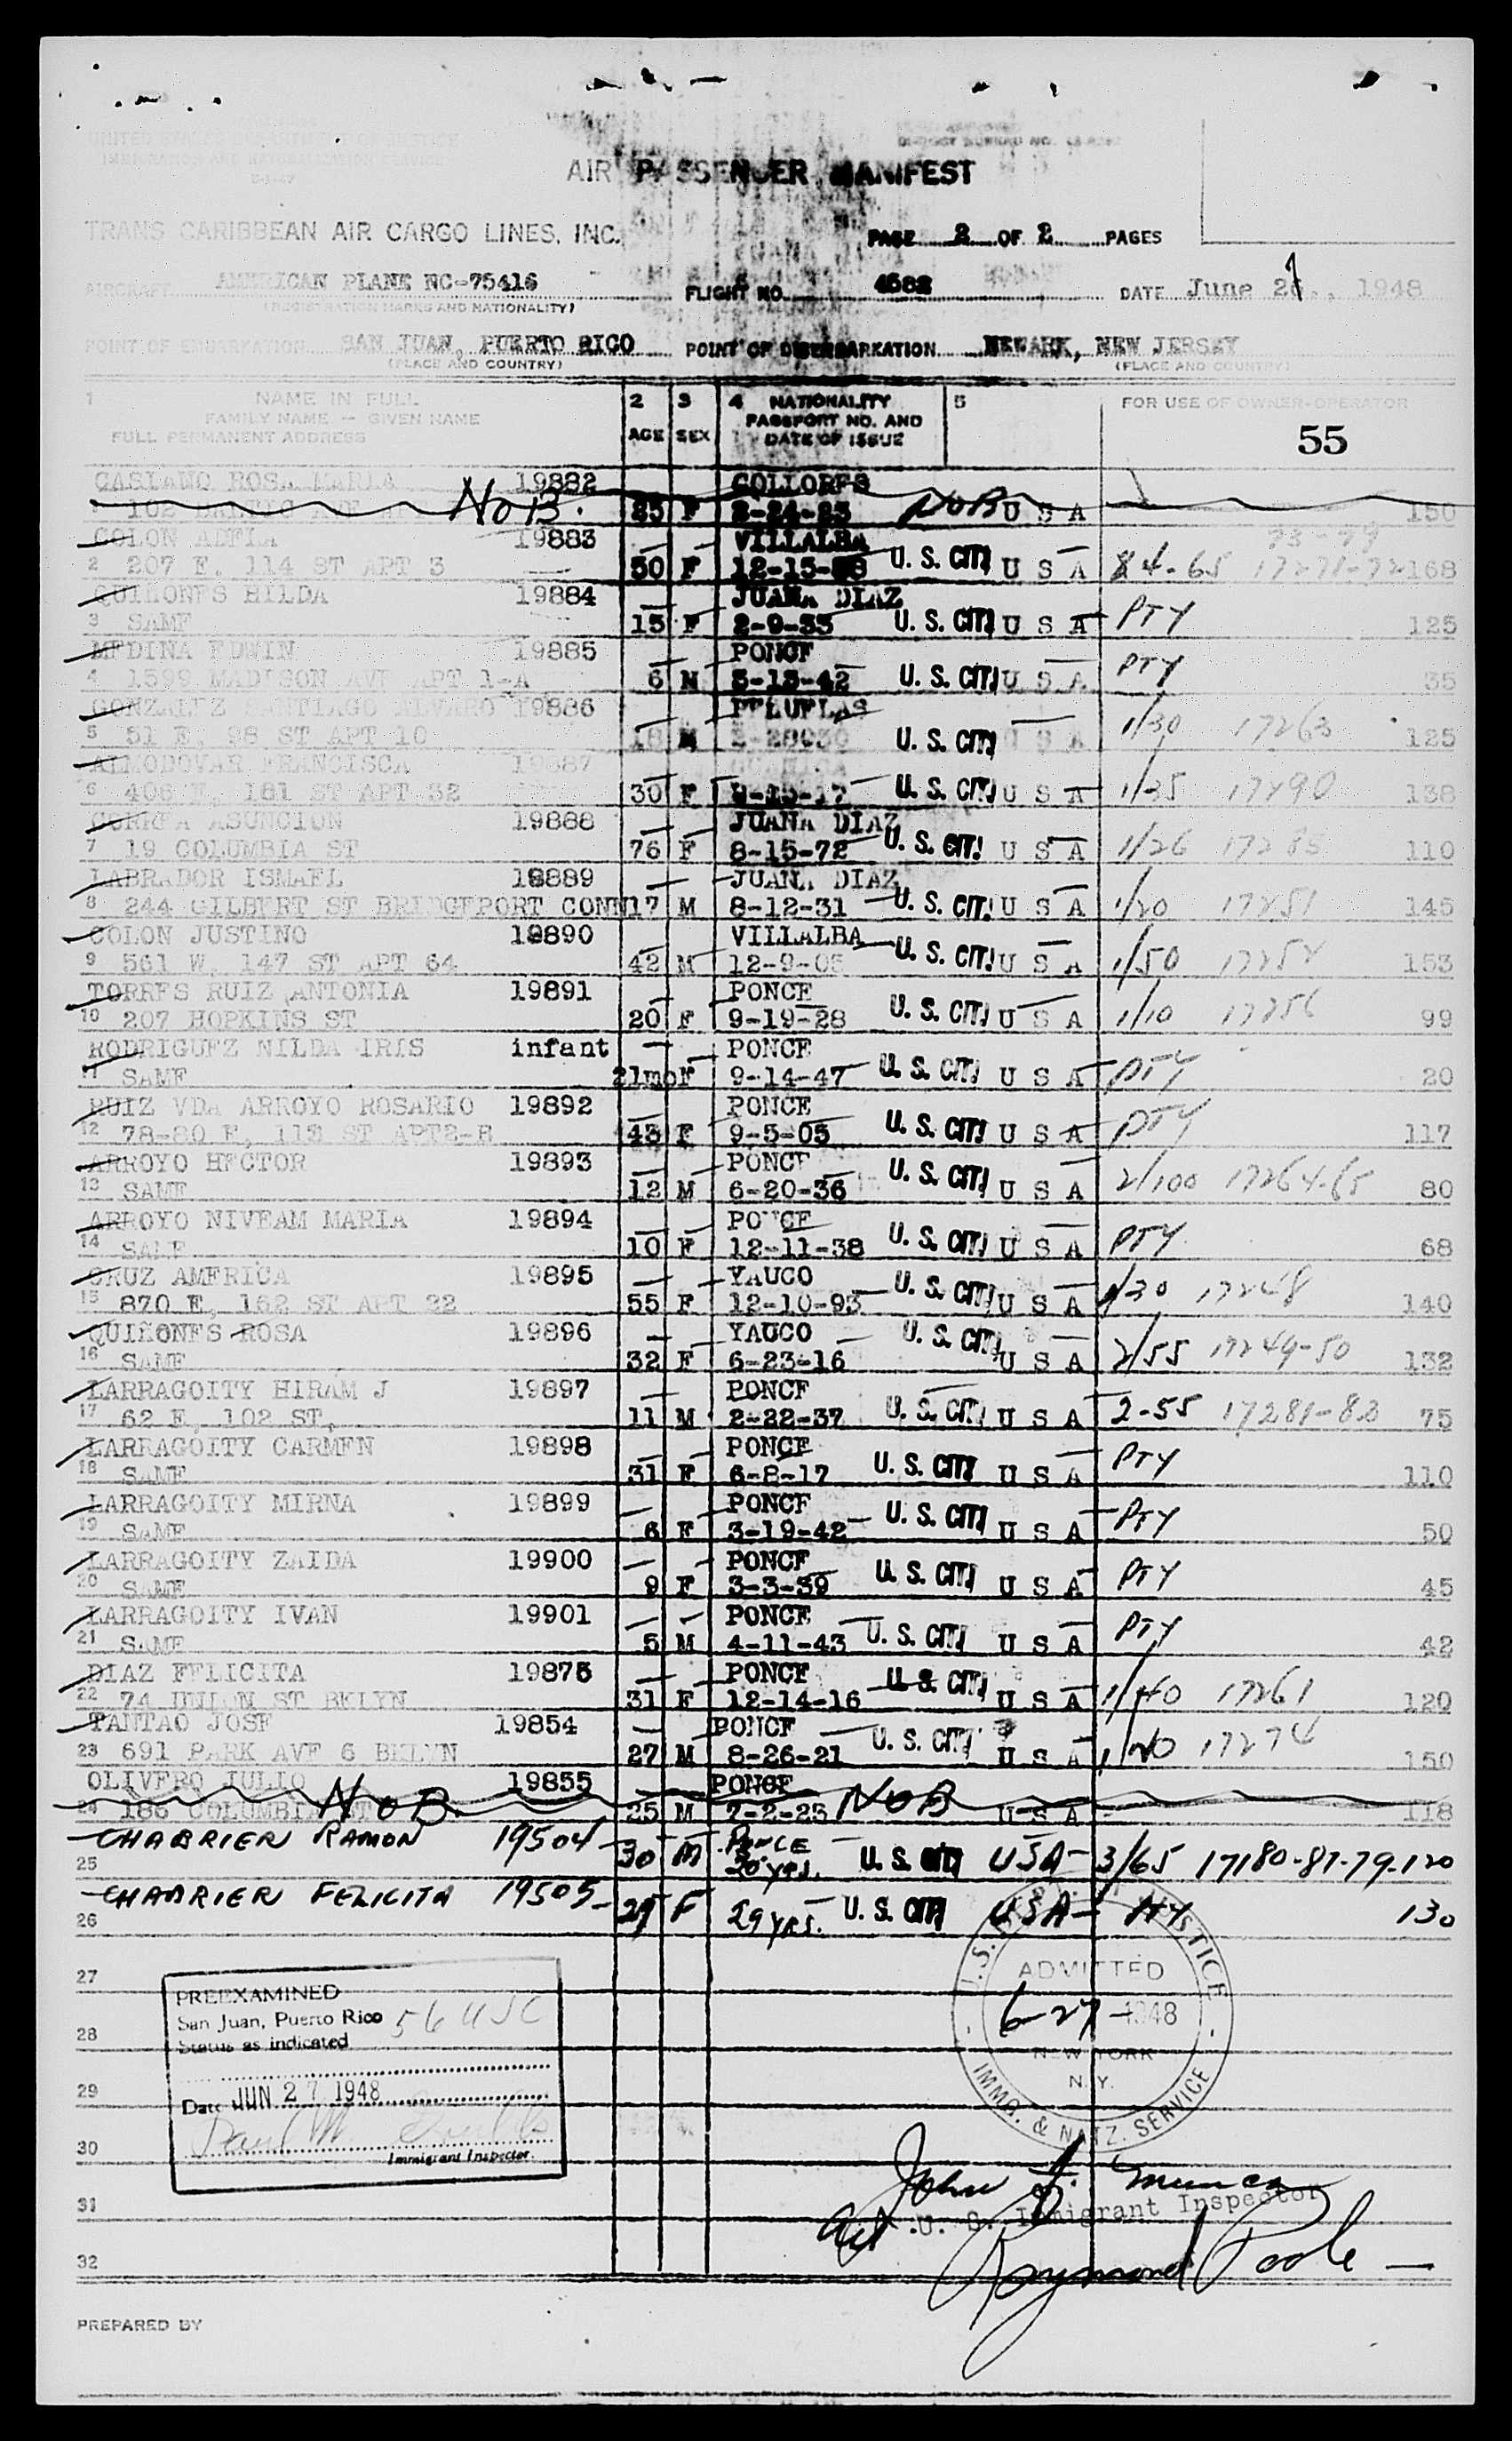 UNITED STATES DEPARTMENT OF JUSTICE
IMMIGRATION AND NATURALIZATION SERVICE
AIR PASSENGER MANIFEST
TRANS CARIBBEAN AIR CARGO LINES, INC.
PAGE 2 OF 2 PAGES
AIRCRAFT AMERICAN PLANE NC-75416
FLIGHT NO. 4582
DATE June 27, 1948
(REGISTRATION MARKS AND NATIONALITY)
POINT OF EMBARKATION SAN JUAN, PUERTO RICO
POINT OF DISEMBARKATION NEWARK, NEW JERSEY
(PLACE AND COUNTRY)
(PLACE AND COUNTRY)
1 NAME IN FULL
FAMILY NAME -- GIVEN NAME
FULL PERMANENT ADDRESS
2 AGE
3 SEX
4 NATIONALITY
PASSPORT NO. AND
DATE OF ISSUE
5
FOR USE OF OWNER-OPERATOR
55
CASIANO ROSA MARIA 19882
1 102 NOB. 25 F 2-24-23 NOB U S A 150
COLON ADELA 19883 VILLALBA 73-79
2 207 E. 114 ST APT 3 50 F U. S. CIT. U S A 84-65 17271-72 168
QUIÑONES HILDA 19884 JUANA DIAZ
3 SAME 15 F 2-9-33 U. S. CIT. U S A PTY 125
MEDINA EDWIN 19885 PONCE
4 1599 MADISON AVE APT 1-A 6 M 5-13-42 U. S. CIT. U S A PTY 35
GONZALEZ SANTIAGO ALVARO 19886 PEÑUELAS
5 51 E. 98 ST APT 10 18 M U. S. CIT. U S A 1/30 17263 125
ALMODOVAR FRANCISCA 19887
6 408 E. 161 ST APT 32 30 F U. S. CIT. U S A 1/35 17290 138
CORREA ASUNCION 19888 JUANA DIAZ
7 19 COLUMBIA ST 76 F 8-15-72 U. S. CIT. U S A 1/26 17285 110
LABRADOR ISMAEL 19889 JUANA DIAZ
8 244 GILBERT ST BRIDGEPORT CONN 17 M 8-12-31 U. S. CIT. U S A 1/20 17251 145
COLON JUSTINO 19890 VILLALBA
9 561 W. 147 ST APT 64 42 M 12-9-05 U. S. CIT. U S A 1/50 17254 153
TORRES RUIZ ANTONIA 19891 PONCE
10 207 HOPKINS ST 20 F 9-19-28 U. S. CIT. U S A 1/10 17256 99
RODRIGUEZ NILDA IRIS infant PONCE
11 SAME 21mo F 9-14-47 U. S. CIT. U S A PTY 20
RUIZ VDA ARROYO ROSARIO 19892 PONCE
12 78-80 E. 112 ST APT 2-B 43 F 9-5-05 U. S. CIT. U S A PTY 117
ARROYO HECTOR 19893 PONCE
13 SAME 12 M 6-20-36 U. S. CIT. U S A 2/100 17264-65 80
ARROYO NIVEAM MARIA 19894 PONCE
14 SAME 10 F 12-11-38 U. S. CIT. U S A PTY 68
CRUZ AMERICA 19895 YAUCO
15 870 E. 162 ST APT 22 55 F 12-10-93 U. S. CIT. U S A 1/30 17248 140
QUIÑONES ROSA 19896 YAUCO
16 SAME 32 F 6-23-16 U. S. CIT. U S A 2/55 17249-50 132
LARRAGOITY HIRAM J 19897 PONCE
17 62 E. 102 ST. 11 M 2-22-37 U. S. CIT. U S A 2-55 17281-82 75
LARRAGOITY CARMEN 19898 PONCE
18 SAME 31 F 6-8-17 U. S. CIT. U S A PTY 110
LARRAGOITY MIRNA 19899 PONCE
19 SAME 6 F 3-19-42 U. S. CIT. U S A PTY 50
LARRAGOITY ZAIDA 19900 PONCE
20 SAME 9 F 3-3-39 U. S. CIT. U S A PTY 45
LARRAGOITY IVAN 19901 PONCE
21 SAME 5 M 4-11-43 U. S. CIT. U S A PTY 42
DIAZ FELICITA 19875 PONCE
22 74 UNION ST BKLYN 31 F 12-14-16 U. S. CIT. U S A 1/40 17261 120
TANTAO JOSE 19854 PONCE
23 691 PARK AVE 6 BKLYN 27 M 8-26-21 U. S. CIT. U S A 1/40 17274 150
OLIVERO JULIO 19855 PONCE
24 186 COLUMBIA ST NOB. 25 M 7-2-23 NOB U S A 118
CHABRIER RAMON 19504 PONCE
25 30 M 30 yrs. U. S. CIT. USA 3/65 17180-81-79-120
CHABRIER FELICITA 19505
26 29 F 29 YRS. U. S. CIT. USA PTY 130
27
28
29
30
31
32
PREEXAMINED
San Juan, Puerto Rico 56 USC
Status as indicated
Date JUN 27 1948
Immigrant Inspector.
U.S. DEPT. OF JUSTICE
ADMITTED
6-27-1948
NEW YORK
N. Y.
IMMG. & NATZ. SERVICE
John J.
Act. U. S. Immigrant Inspector
Raymond Poole
PREPARED BY